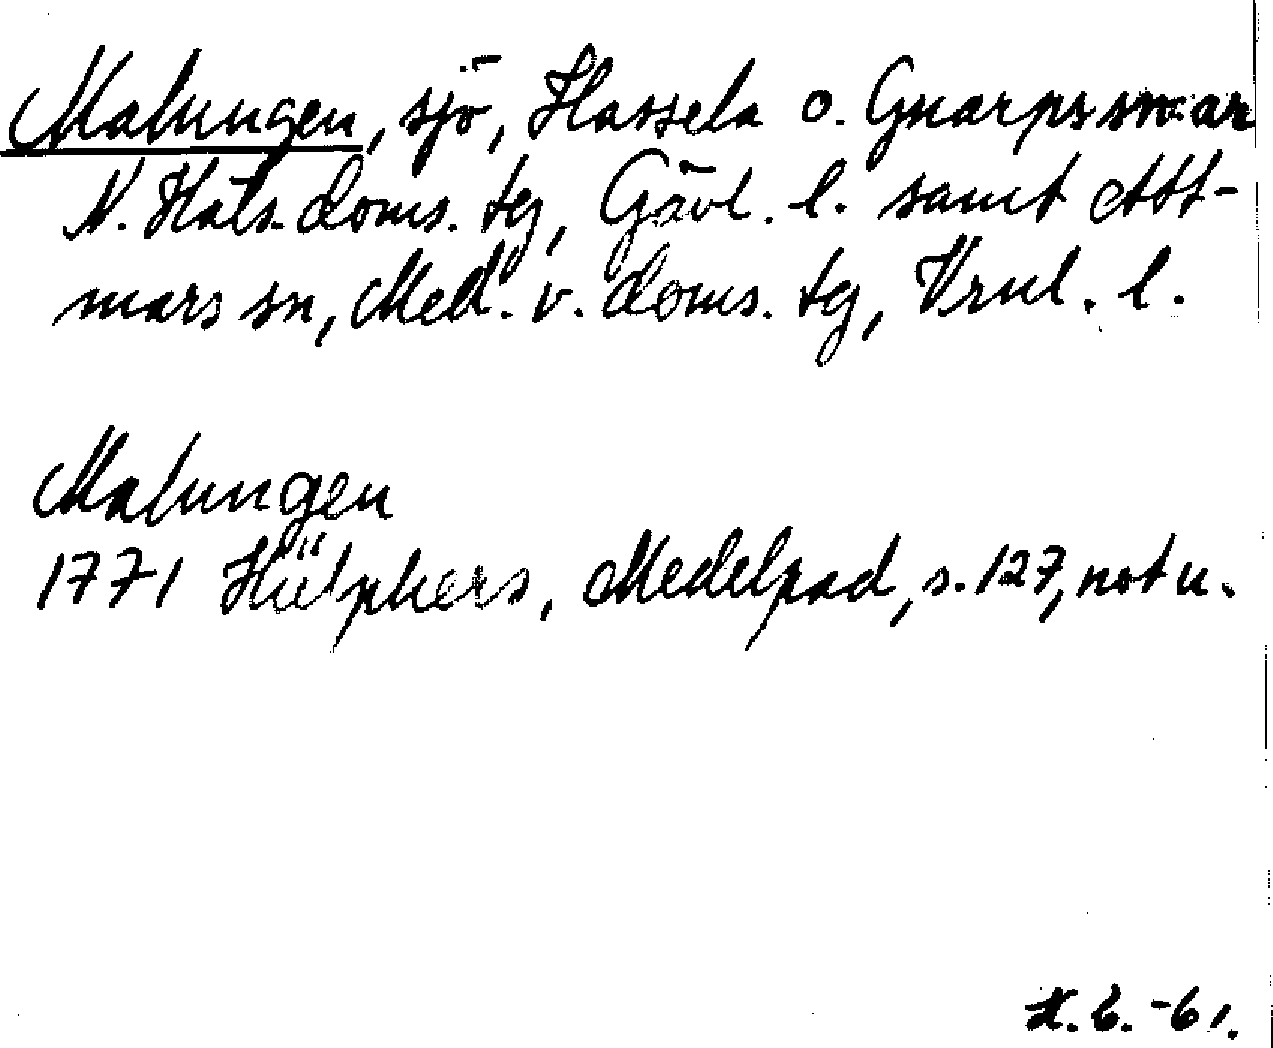 Malungen, sjö, Hassela o. Gnarps snar
N. Häls. doms. tg, Gävl. l. samt Att-
mars sn, Med. v. doms. tg, Vrnl. l.
Malungen
1771 Hülphers, Medelpad, s. 127, not u.
-61.